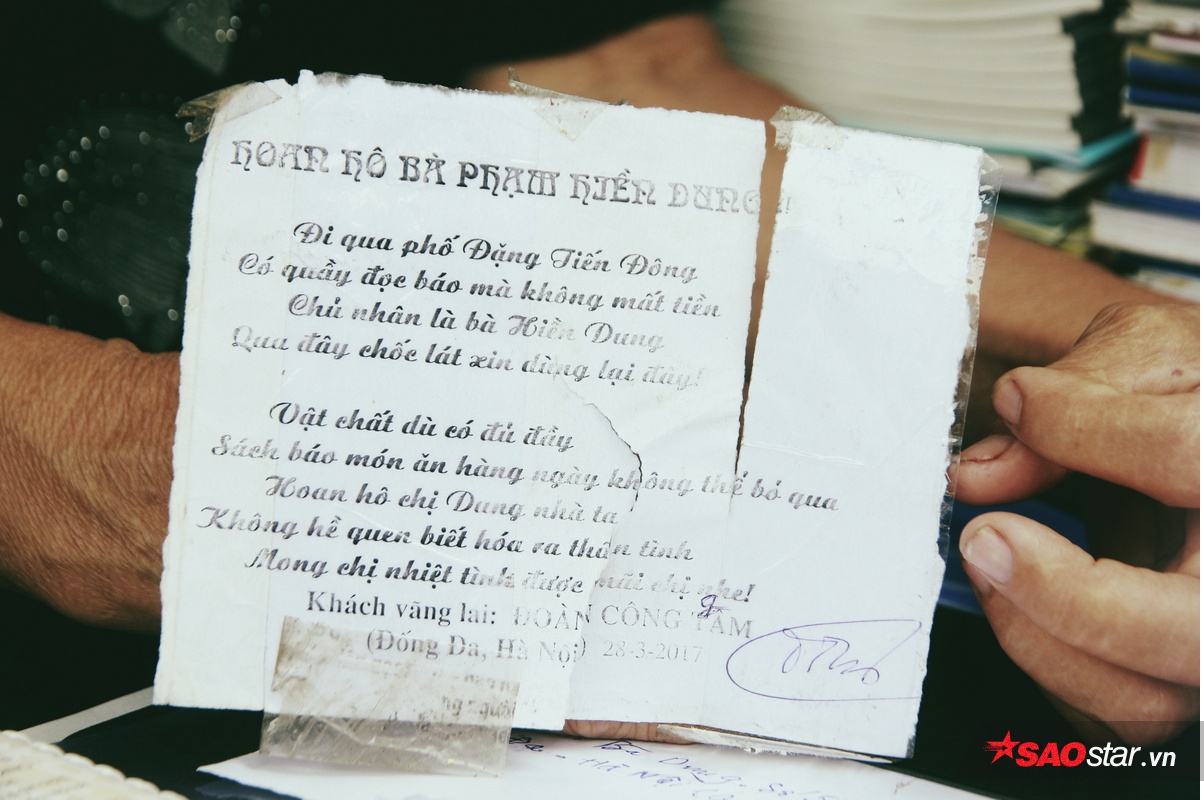 HOAN HÔ BÀ PHẠM HIỀN DUNG!!
Đi qua phố Đặng Tiến Đông
Có quầy đọc báo mà không mất tiền
Chủ nhân là bà Hiền Dung
Qua đây chốc lát xin dừng lại đây!
Vật chất dù có đủ đầy
Sách báo món ăn hàng ngày không thể bỏ qua
Hoan hô chị Dung nhà ta
Không hề quen biết hóa ra thân tình
Mong chị nhiệt tình được mãi chị nhe!
Khách vãng lai: ĐOÀN CÔNG TÂM
(Đống Đa, Hà Nội) 28-3-2017
Hà Nội
SAOstar.vn